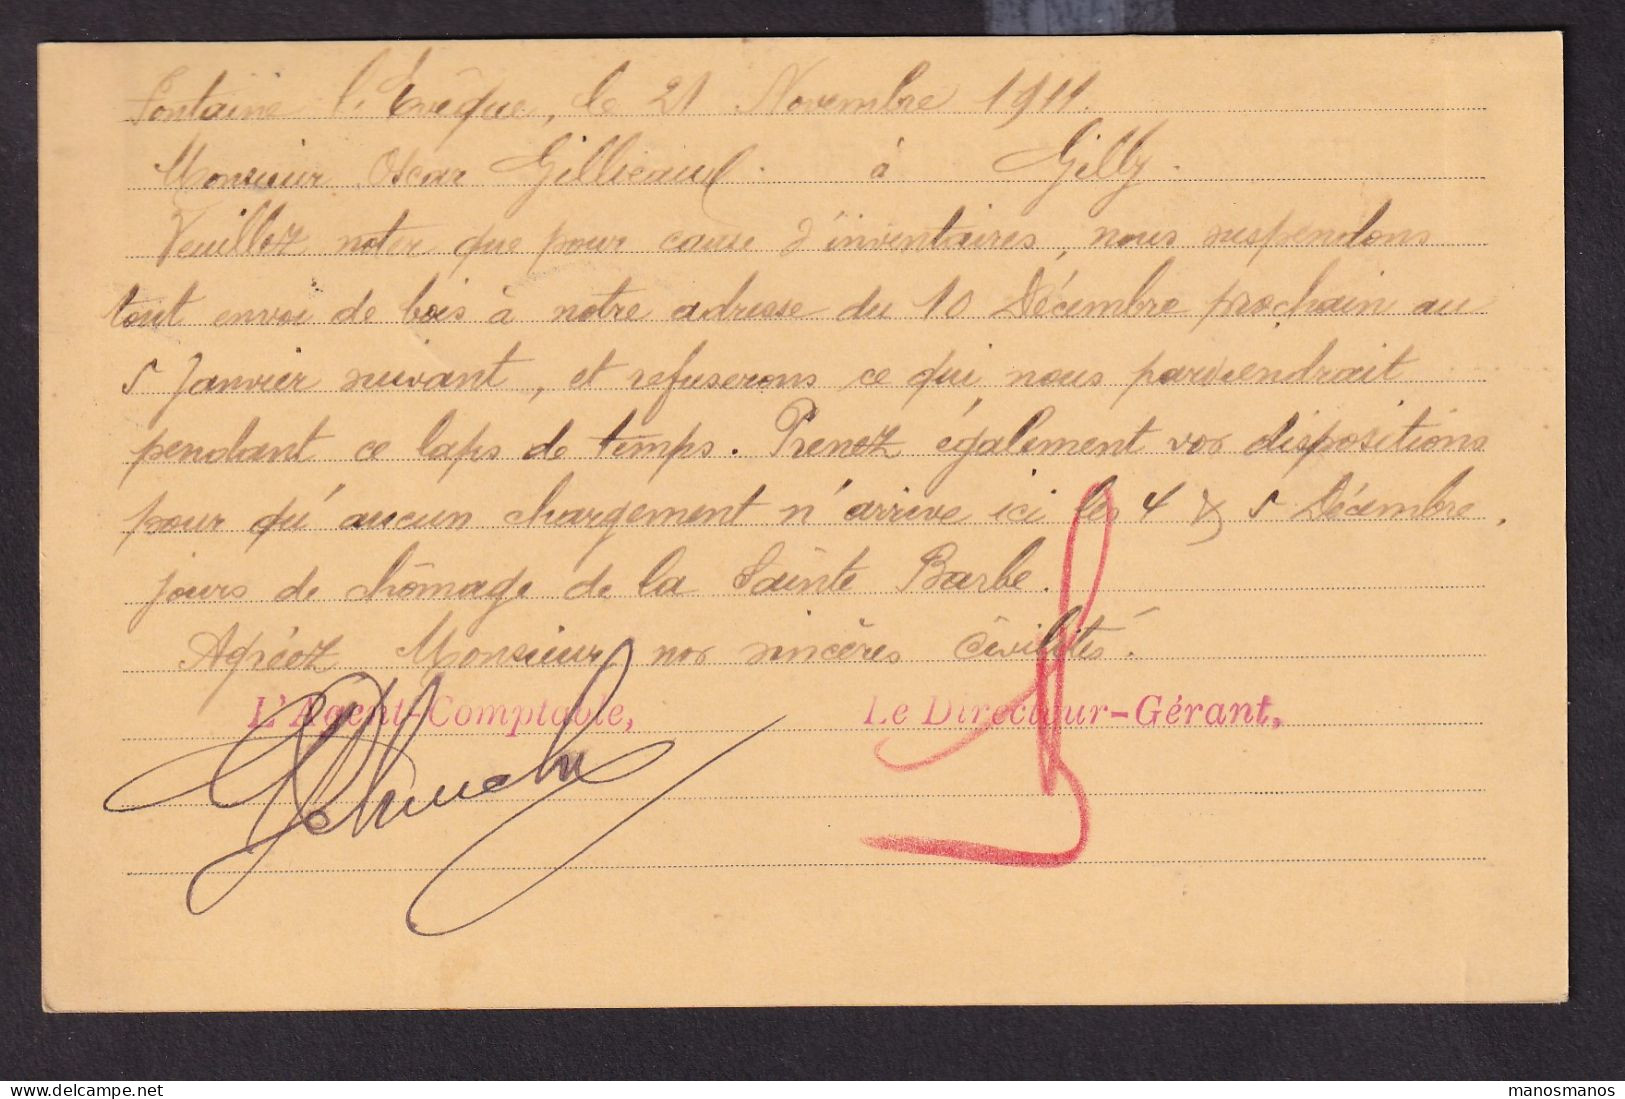 Fontaine l'Evêque, le 21 Novembre 1911.
Monsieur Oscar Gillieaux. à Gilly.
Veuillez noter que pour cause d'inventaires, nous suspendons
tout envoi de bois à notre adresse du 10 Décembre prochain au
5 Janvier suivant, et refuserons ce qui nous parviendrait
pendant ce laps de temps. Prenez également vos dispositions
pour qu'aucun chargement n'arrive ici les 4 & 5 Décembre,
jours de chômage de la Sainte Barbe.
Agréez Monsieur nos sincères civilités.
L'Agent-Comptable, Le Directeur-Gérant,
manosmanos